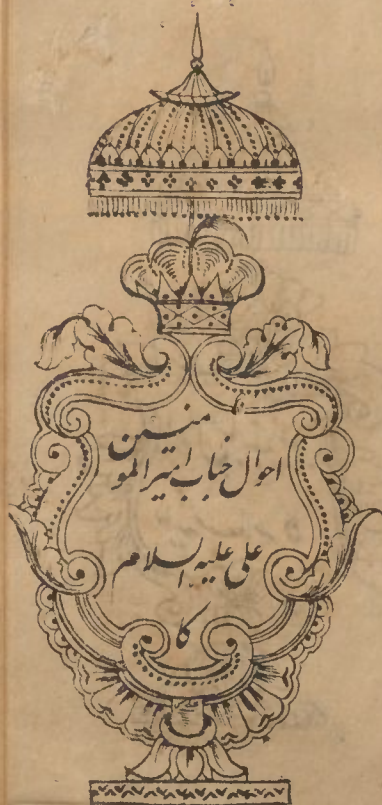 احوال جناب امیر المومنین
علی علیہ السلام
کا